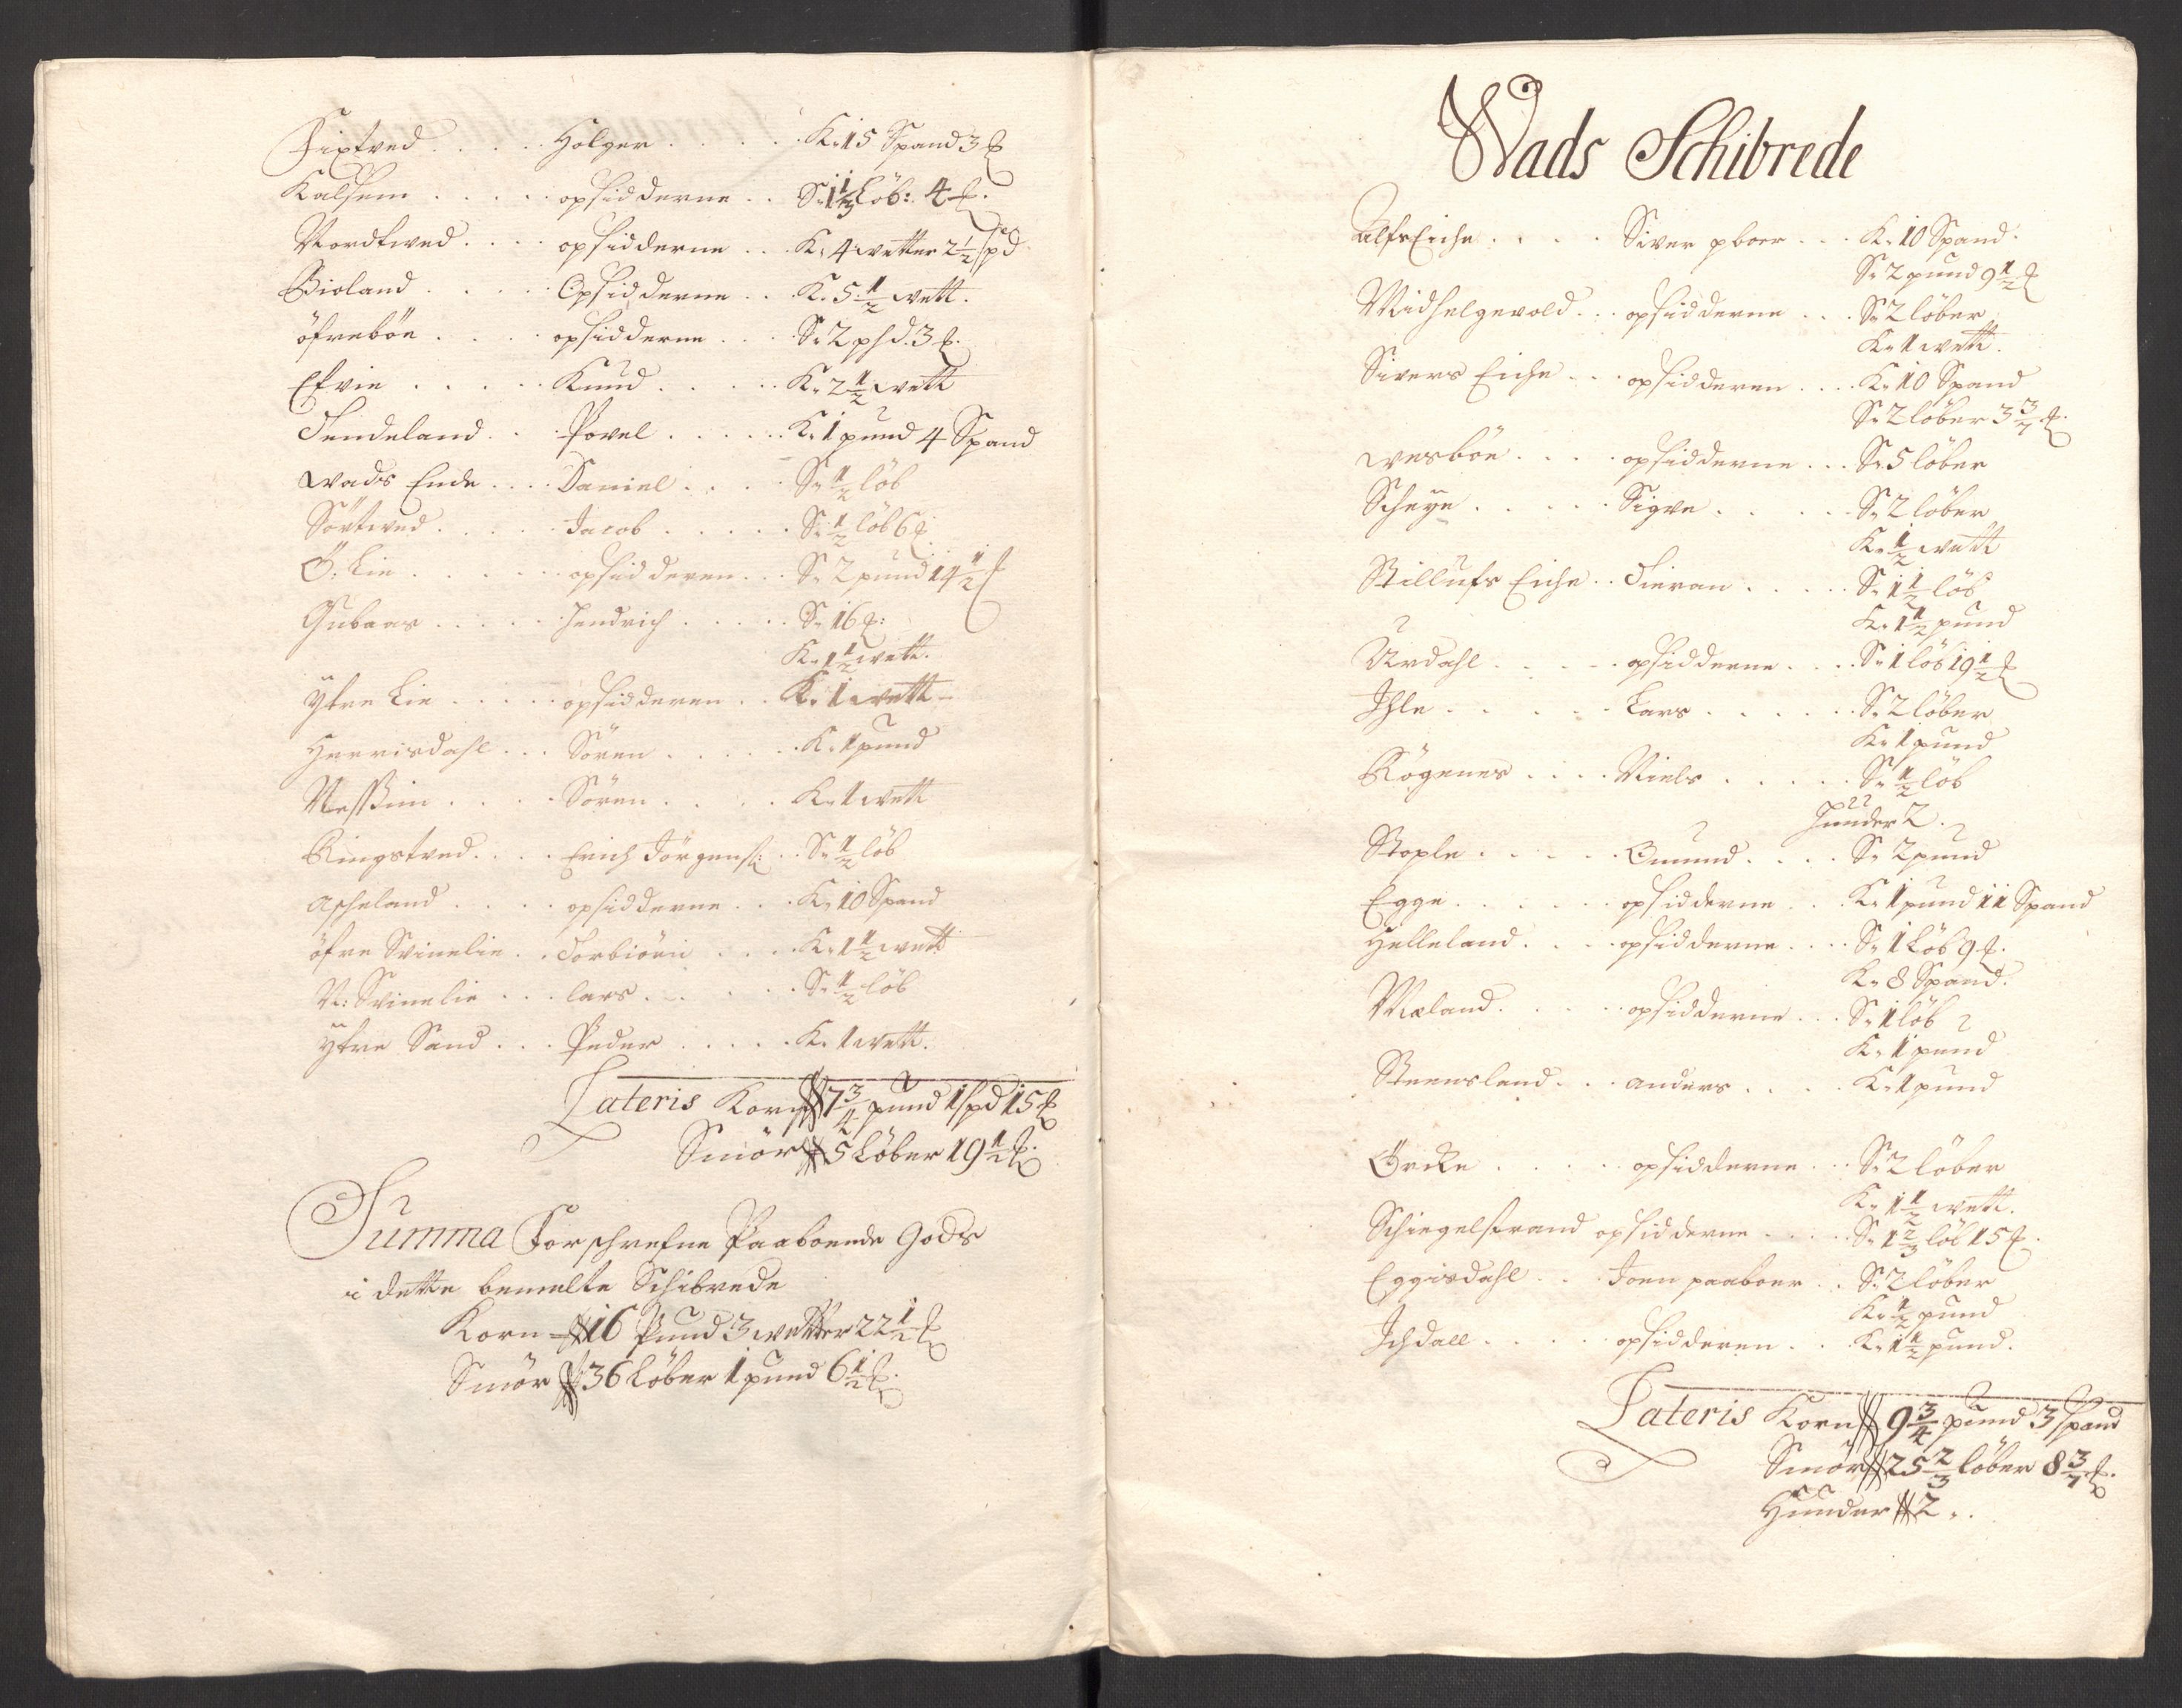 Fixtved . . . . Holger . . . . K: 15 Spand 3 ℔
Kalhem . . . . opsidderne . . S: 1 1/3 löb: 4 ℔.
Nordtved . . . . opsidderne . . K: 4 wetter 2 1/2 spd
Bioland . . . . Opsidderne . . K. 5 1/2 wett.
öfrebön . . . . opsidderne . . S: 2 phd. 3 ℔.
Efvie . . . . . Knud . . . . K: 2 1/2 wett
Tendeland . . Povel . . . . . K: 1 pund 4 Spand
Wads Ende . . . Daniel . . . S: 1/2 löb
Sörtved . . . . Jacob . . . . . S: 1/2 löb 6 ℔.
Ö: Lie . . . . . opsidderen . . S: 2 pund 14 1/2 ℔
Gubaas . . . . . Hendrich . . . . S: 16 ℔:
K: 1 1/2 wett.
Ytre Lie . . . . opsidderen . . K: 1 wett
Herrisdahl . . . Sören . . . . . K: 1 pund
Neskim . . . . Sören . . . . K: 1 wett
Ringstved . . . Erich Jörgens: . . S: 1/2 löb
Ascheland . . . . opsidderne . . . K: 10 Spand
öfre Svinelie . . Torbiörn . . . K: 1 1/2 wett
N: Svinelie . . . lars . . . . . S: 1/2 löb
Ytre Sand . . . Peder . . . . . K. 1 wett.
Lateris Korn 7 3/4 pund 1 spd 15 ℔
Smör 5 Löber 19 1/2 ℔.
Summa Forschrefne Paaboende Gods
i dette bemelte Schibrede
Korn 16 Pund 3 wetter 22 1/2 ℔
Smör 36 Löber 1 pund 6 1/2 ℔.
Wads Schibrede
Alfs Eiche . . . . Siver pboer . . . K: 10 Spand.
S: 2 pund 9 1/2 ℔
Midhelgevold . . opsidderne . . . S: 2 löber
K: 1 wett.
Sivers Eiche . . . opsidderen . . . K: 10 Spand
S: 2 löber 3 3/7 ℔.
Wesböe . . . . opsidderne . . . S: 5 löber
Scheye . . . . . Sigve . . . . S: 2 löber
K: 1/2 wett
Stillufs Eiche . . Sieran . . . . . S: 1 1/2 löb
K: 1 1/2 pund
Urdahl . . . . . opsidderne . . . S: 1 löb 19 1/2 ℔
Ihle . . . . . Lars . . . . . . S: 2 löber
K: 1 pund
Rögenes . . . . Niels . . . . . S: 1/2 löb
Huuder 2 .
Stople . . . . . Omund . . . . S: 2 pund
Egge . . . . . . opsidderne . . K: 1 pund 11 Spand
Helleland . . . . opsidderne . . . . S: 1 Löb 9 ℔.
K: 8 Spand.
Mæland . . . . opsidderne . . . S: 1 löb
K: 1 pund
Steensland . . . anders . . . . K: 1 pund
Örcke . . . . . opsidderne . . S: 2 löber
K: 1 1/2 wett.
Schiegelstrand opsidderne . . . . . S: 1 2/3 löb 15 ℔.
Eggisdahl . . Joen paaboer . . S: 2 löber
K: 1/2 pund
Ichdall . . . . . opsidderen . . . K: 1 1/2 pund.
Lateris Korn 9 3/4 pund 3 spand
Smör 25 2/3 löber 8 3/7 ℔.
Huuder 2 .